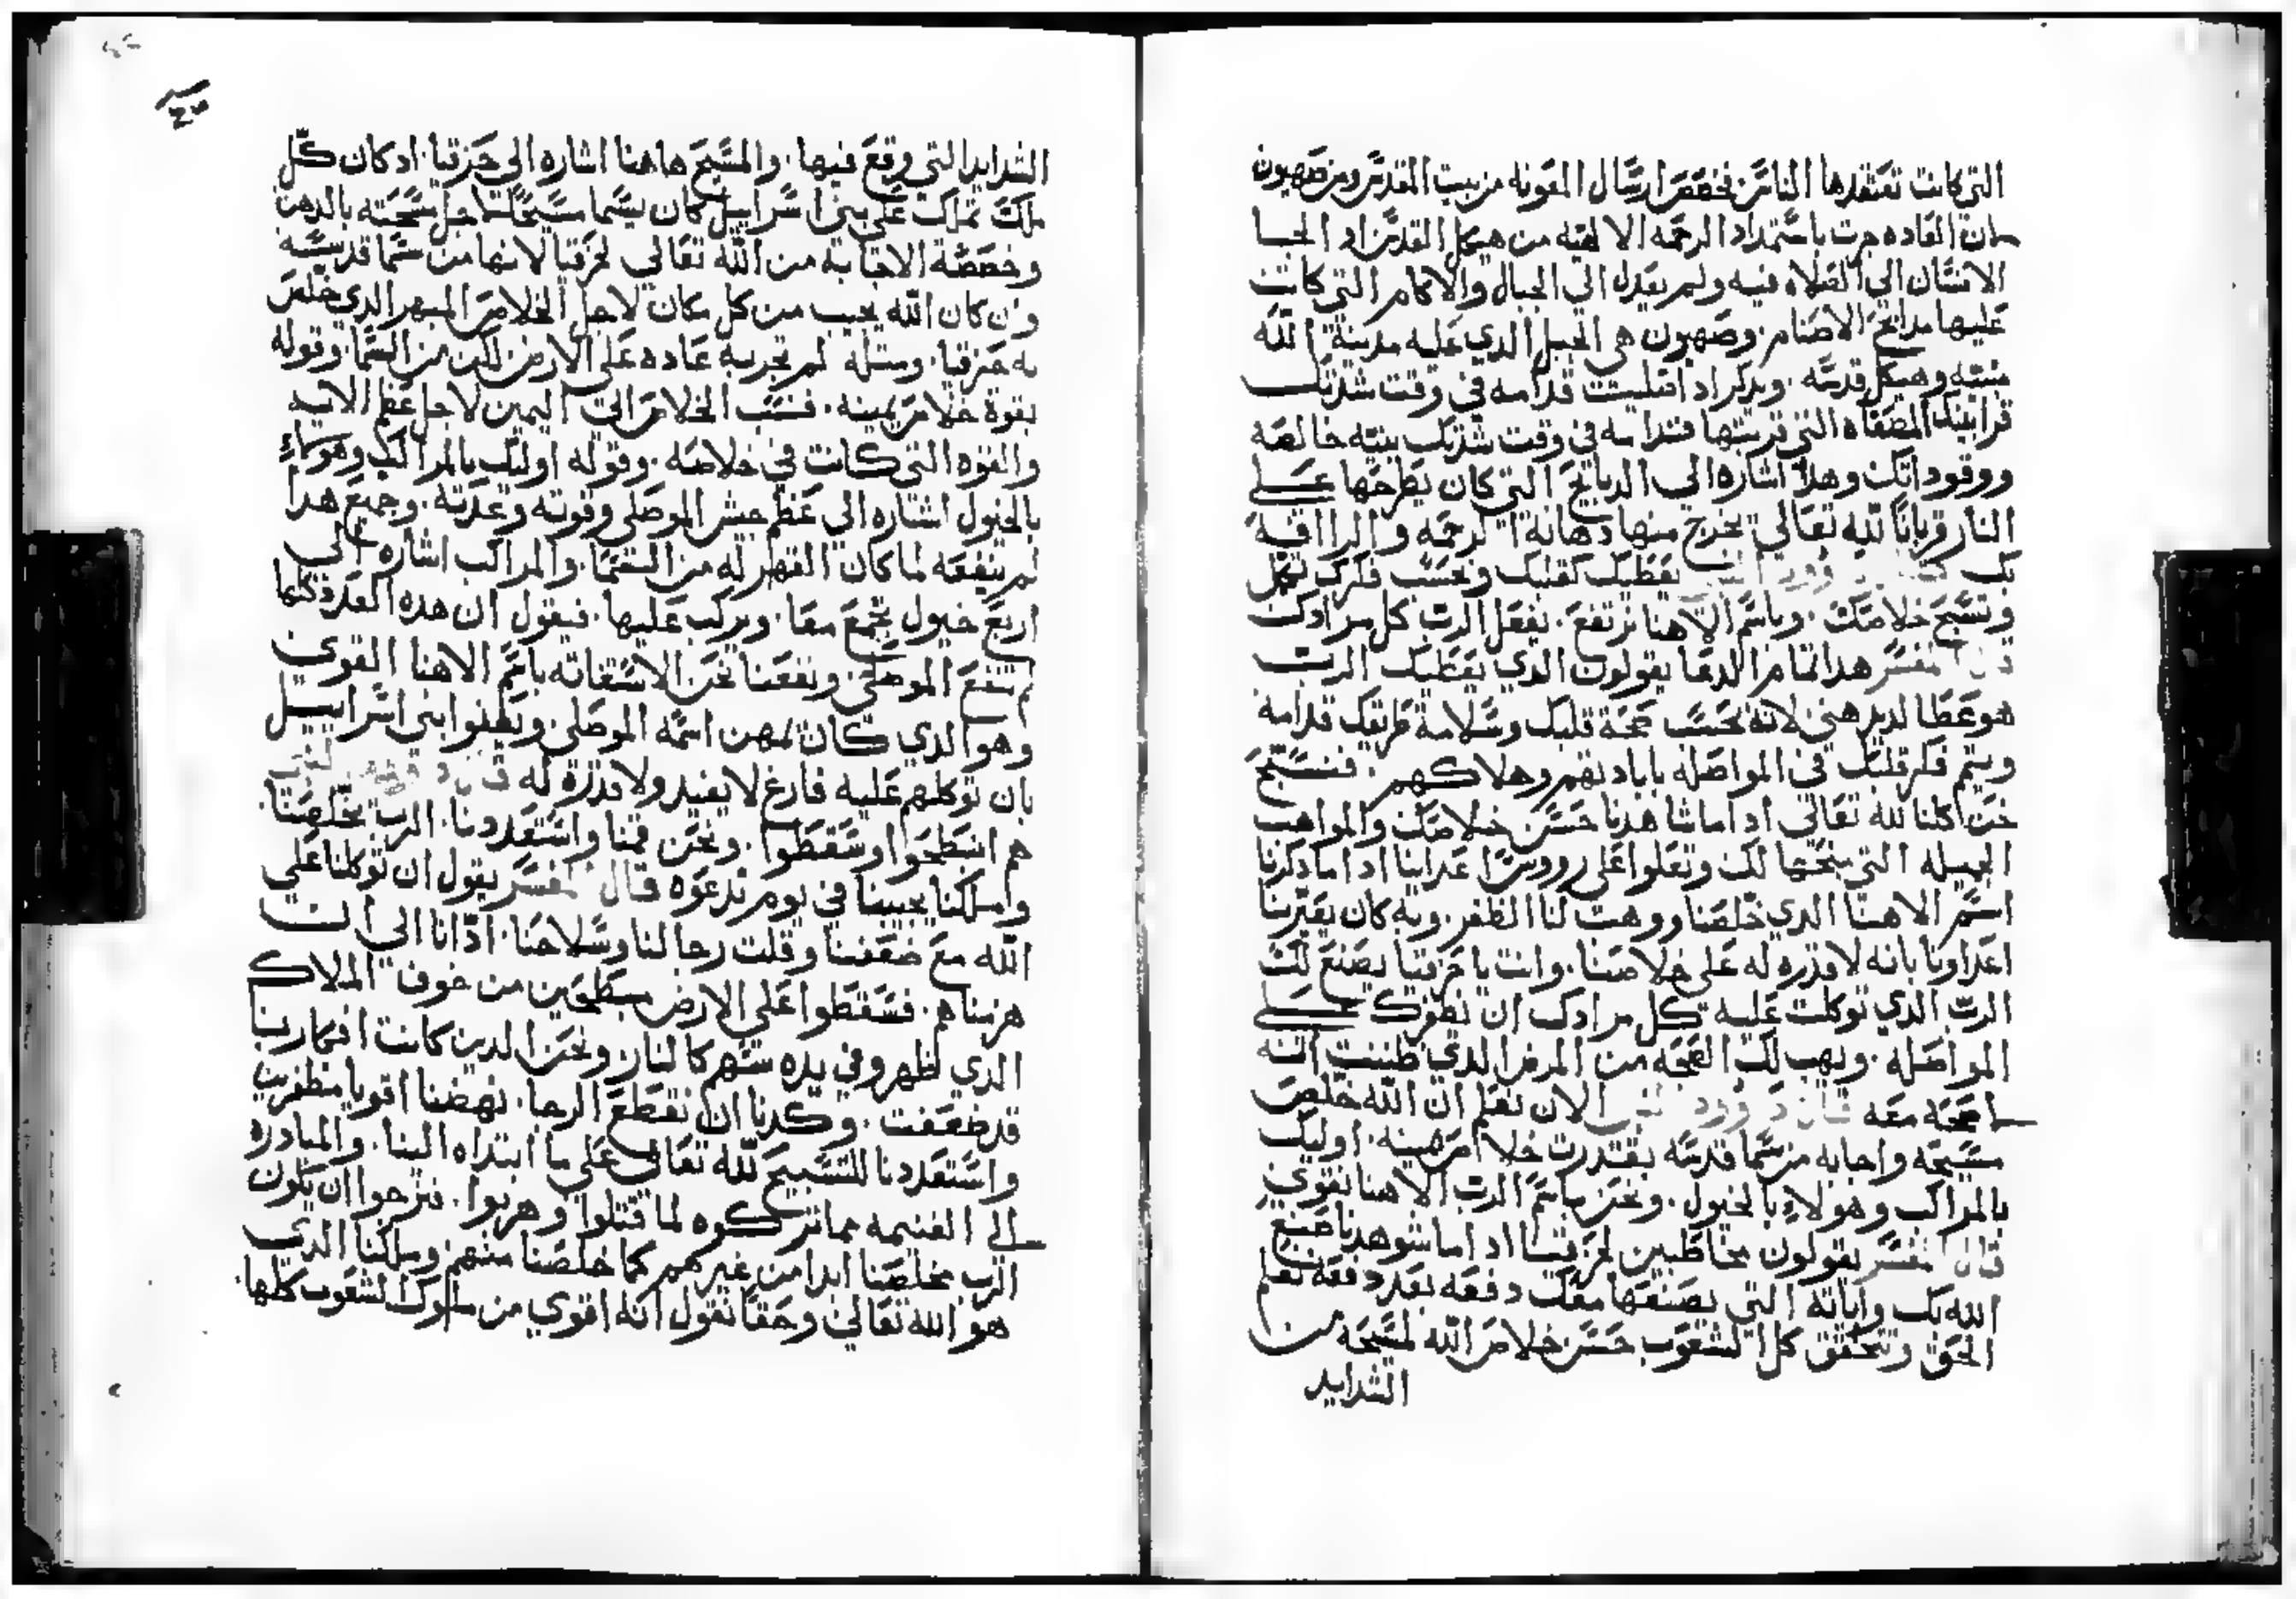 التي كانت تعتقدها الناس فخصص ارسال المعونه من بيت القدس ومن صهيون
لان العاده جرت باستمداد الرحمه الالهيه من هيكل القدس اد الجا
الانسان الي الصلاه فيه ولم يعدل الي الجبال والاكام التي كانت
عليها مدابح الاصنام. وصهيون هي الجبل الدي عليه مدينة الله
مبنيه وهيكل قدسه. ويدكر اد اصليت قدامه في وقت شدتك
قرابينك المصفاه التي قربتها قدامه في وقت شدتك بنيه خالصه
ووقوداتك وهدا اشاره الي الدبايح التي كان يطرحها علي
النار قرباناً لله تعالي يخرج منها دهانة الرحمه والراافه
بك داوود النبي يعطيك كقلبك وبحسب فكرك يكمل
ونسبح خلاصك. وباسم الاهنا نرتفع. يفعل الرب كل مرادك
قال المفسر هدا تمام الدعا يقولون الدي يعطيك الرب
هو عطا لديد هني لانه بحسب صحة قلبك وسلامة طريقك قدامه
ويتم فكر قلبك في المواصله بابادتهم وهلاكهم. فنسبح
نحن كلنا لله تعالي اد اما شاهدنا حسن خلاصك والمواهب
الجميله التي منحتها لك ونعلوا علي رووس اعداينا ادا ما دكرنا
اسم الاهنا الدي خلصنا ووهب لنا الظفر. وبه كان يعيرنا
اعداونا بانه لا قدره له علي خلاصنا. وانت يا حزقيا يصنع لك
الرب الدي توكلت عليه كل مرادك ان نصرك علي
المواصله. ويهب لك الصحه من المرض الدي ظننت انه
لا صحه معه قال داوود النبي الان نعلم ان الله خلص
مسيحه واجابه من سما قدسه بقدرت خلاص يمينه. اوليك
بالمراكب وهولاء بالخيول. ونحن باسم الرب الاهنا نقوي
قال المفسر يقولون مخاطبين لحزقيا ادا ما شوهدنا صنع
الله بك واياته التي يصنعها معك دفعه بعد دفعه نعلم
الحق وتتحقق كل الشعوب حسن خلاص الله لمسيحه من
الشدايد
الشدايد التي وقع فيها. والمسيح هاهنا اشاره الي حزقيا. اد كان كل
ملك تملك علي بني اسراييل كان يسما مسيحاً لاجل مسحته بالدهن
وخصصة الاجابه من الله تعالي لحزقيا لانها من سما قدسه
وان كان الله يجيب من كل مكان لاجل الخلاص المبهر الدي خلص
به حزقيا. ومتله لم تجر به عاده علي الارض لكن من السما. وقوله
بقوة خلاص يمينه. فنسب الخلاص الي اليمين لاجل عظم الايه
والقوه التي كانت في خلاصه. وقوله اوليك بالمراكب وهولاء
بالخيول اشاره الي عظم جيش الموصلي وقوته وعدته. وجميع هدا
لم ينفعه لما كان القهر له من السما. والمراكب اشاره الي
اربع خيول تجمع معا. ويركب عليها. فيقول ان هده العدد كلها
لم تنفع الموصلي ونفعنا نحن الاستغاته باسم الاهنا القوي
وهو الدي كان يمهن اسمه الموصلي. ويظنوا بني اسراييل
بان توكلهم عليه فارغ لا يفيد ولا قدره له قال داوود النبي
هم انبطحوا وسقطوا. ونحن قمنا واستعددنا. الرب يخلصنا.
وملكنا يجيبنا في يوم ندعوه قال المفسر يقول ان توكلنا علي
الله مع ضعفنا وقلت رجالنا وسلاحنا. اذانا الي ان
هزمناهم. فسقطوا علي الارض مبطحين من خوف الملاك
الدي ظهر وفي يده شهر كالنار. ونحن الدين كانت افكارنا
قد ضعفت. وكدنا ان نقطع الرجا. نهضنا اقويا مظفرين
واستعددنا للتسبيح لله تعالي علي ما ابتداه الينا. والمبادره
الي الغنيمه مما تركوه لما قتلوا وهربوا. فنرجوا ان يكون
الرب مخلصنا ابدا من غيرهم كما خلصنا منهم. وملكنا الدي
هو الله تعالي وحقا نقول انه اقوي من ملوك الشعوب كلها.